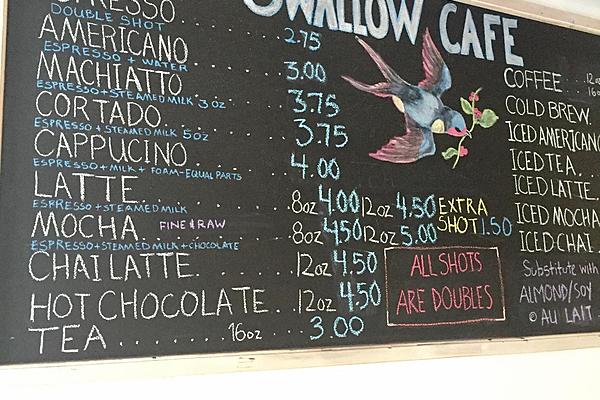 SWALLOW CAFE
ESPRESSO . . . . 2.75
DOUBLE SHOT
AMERICANO . . . . 3.00
ESPRESSO + WATER
MACHIATTO . . . . 3.75
ESPRESSO + STEAMED MILK 3 OZ
CORTADO . . . . 3.75
ESPRESSO + STEAMED MILK 5OZ
CAPPUCINO . . . . 4.00
ESPRESSO + MILK + FOAM-EQUAL PARTS
LATTE . . . . 8oz 4.00 12oz 4.50
ESPRESSO + STEAMED MILK
MOCHA FINE & RAW . . . . 8oz 4.50 12oz 5.00
ESPRESSO + STEAMED MILK + CHOCOLATE
CHAI LATTE . . . . 12oz 4.50
HOT CHOCOLATE . . 12oz 4.50
TEA . . . . 16oz . . . . 3.00
EXTRA
SHOT 1.50
ALL SHOTS
ARE DOUBLES
COFFEE . . 12oz
16oz
COLD BREW
ICED AMERICANO
ICED TEA
ICED LATTE
ICED MOCHA
ICED CHAI
Substitute with
ALMOND/SOY
@ AU LAIT